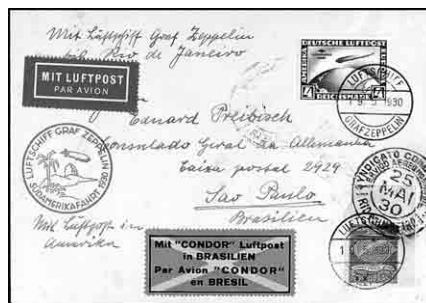 Mit Luftschiff Graf Zeppelin
bis Rio de Janeiro
MIT LUFTPOST
PAR AVION
DEUTSCHE LUFTPOST
4 REICHSMARK 4
LUFTSCHIFF
1930
GRAF ZEPPELIN
Eduard Preibisch
Consulado Geral da Allemanha
Caixa postal 2929
Sao Paulo
Brasilien
LUFTSCHIFF GRAF ZEPPELIN
SÜDAMERIKAFAHRT 1930
SYNDICATO CONDOR
25
MAI
30
Mit Luftpost in
Amerika
Mit "CONDOR" Luftpost
in BRASILIEN
Par Avion "CONDOR"
en BRESIL